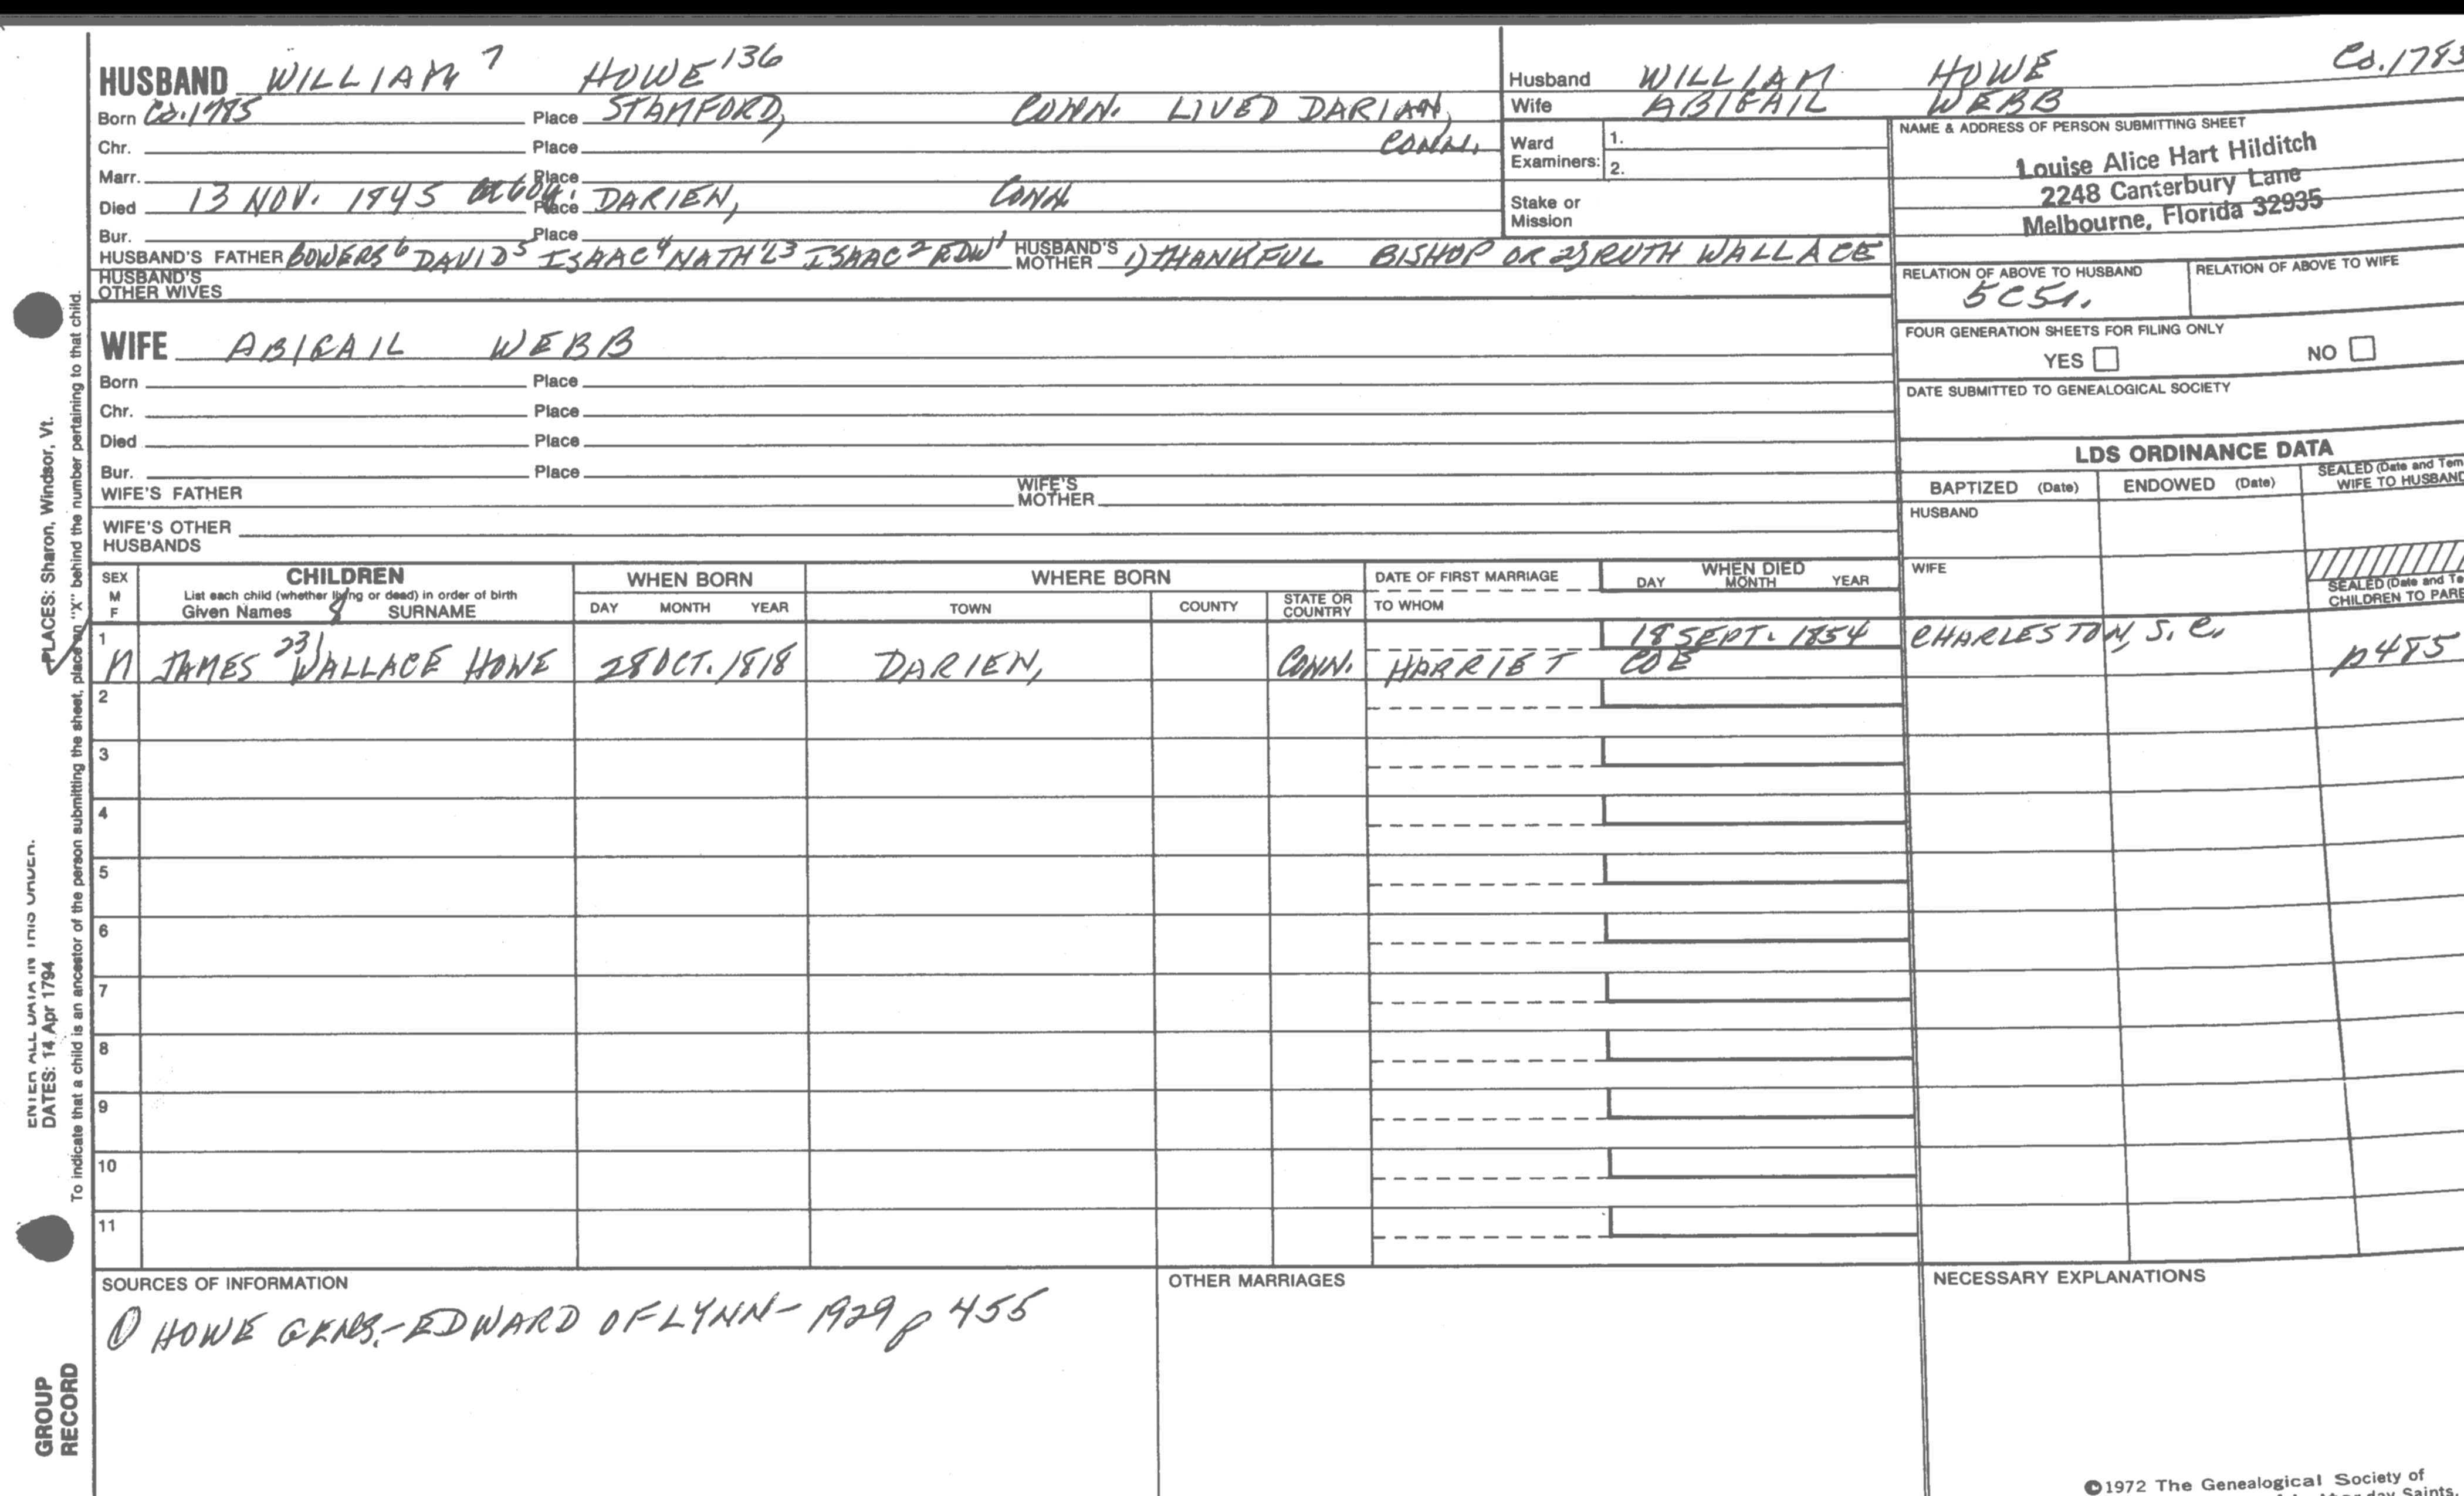 HUSBAND WILLIAM 7 HOWE 136
Born Ca. 1785 Place STAMFORD, CONN. LIVED DARIAN, CONN.
Chr. Place
Marr. Place
Died 13 NOV. 1845 60y. Place DARIEN, CONN
Bur. Place
HUSBAND'S FATHER BOWERS 6 DAVID 5 ISAAC 4 NATH'L 3 ISAAC 2 EDW 1 HUSBAND'S MOTHER 1) THANKFUL BISHOP OR 2) RUTH WALLACE
HUSBAND'S OTHER WIVES
Husband WILLIAM HOWE Ca. 1785
Wife ABIGAIL WEBB
Ward Examiners: 1.
2.
Stake or Mission
NAME & ADDRESS OF PERSON SUBMITTING SHEET
Louise Alice Hart Hilditch
2248 Canterbury Lane
Melbourne, Florida 32935
RELATION OF ABOVE TO HUSBAND RELATION OF ABOVE TO WIFE
5C5r.
FOUR GENERATION SHEETS FOR FILING ONLY
YES NO
DATE SUBMITTED TO GENEALOGICAL SOCIETY
WIFE ABIGAIL WEBB
Born Place
Chr. Place
Died Place
Bur. Place
WIFE'S FATHER WIFE'S MOTHER
WIFE'S OTHER HUSBANDS
LDS ORDINANCE DATA
BAPTIZED (Date) ENDOWED (Date) SEALED (Date and Tem WIFE TO HUSBAND
HUSBAND
WIFE
SEALED (Date and Te
CHILDREN TO PARE
SEX M F
CHILDREN
List each child (whether living or dead) in order of birth
Given Names SURNAME
WHEN BORN
DAY MONTH YEAR
WHERE BORN
TOWN COUNTY STATE OR COUNTRY
DATE OF FIRST MARRIAGE
TO WHOM
WHEN DIED
DAY MONTH YEAR
1 M JAMES 8 231 WALLACE HOWE 28 OCT. 1818 DARIEN, CONN. HARRIET COE 18 SEPT. 1854 CHARLESTON, S. C. p485
2
3
4
5
6
7
8
9
10
11
SOURCES OF INFORMATION
① HOWE GENS.-EDWARD OF LYNN- 1929 p 455
OTHER MARRIAGES
NECESSARY EXPLANATIONS
©1972 The Genealogical Society of
day Saints,
PLACES: Sharon, Windsor, Vt.
ENTER ALL DATA IN THIS ORDER:
DATES: 14 Apr 1794
To indicate that a child is an ancestor of the person submitting the sheet, place an "X" behind the number pertaining to that child.
GROUP
RECORD